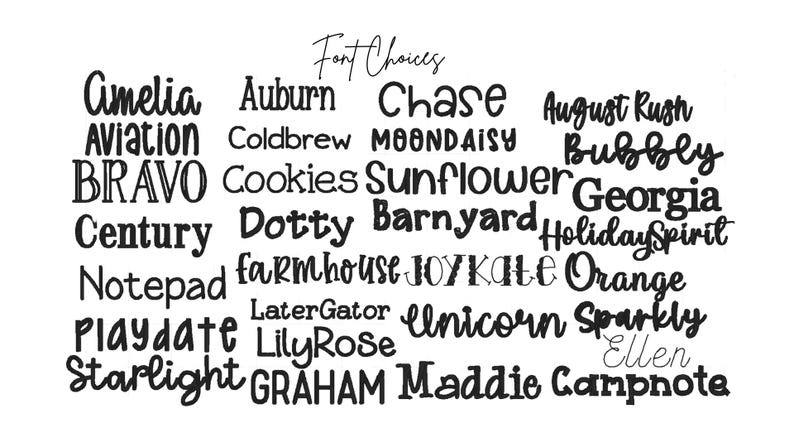 Font Choices
Amelia Auburn Chase August Rush
AVIATION Coldbrew MOONDAISY Bubbly
BRAVO Cookies Sunflower Georgia
Century Dotty Barnyard HolidaySpirit
Notepad farmhouse JOYKate Orange
Playdate LaterGator Unicorn Sparkly
LilyRose Ellen
Starlight GRAHAM Maddie Campnote